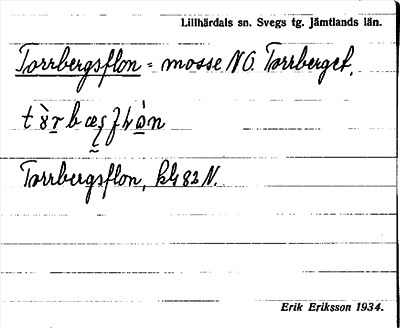 Lillhärdals sn. Svegs tg. Jämtlands län.
Torrbergsflon = mosse NO. Torrberget.
Torrbergsflon, kbl 82 N.
Erik Eriksson 1934.